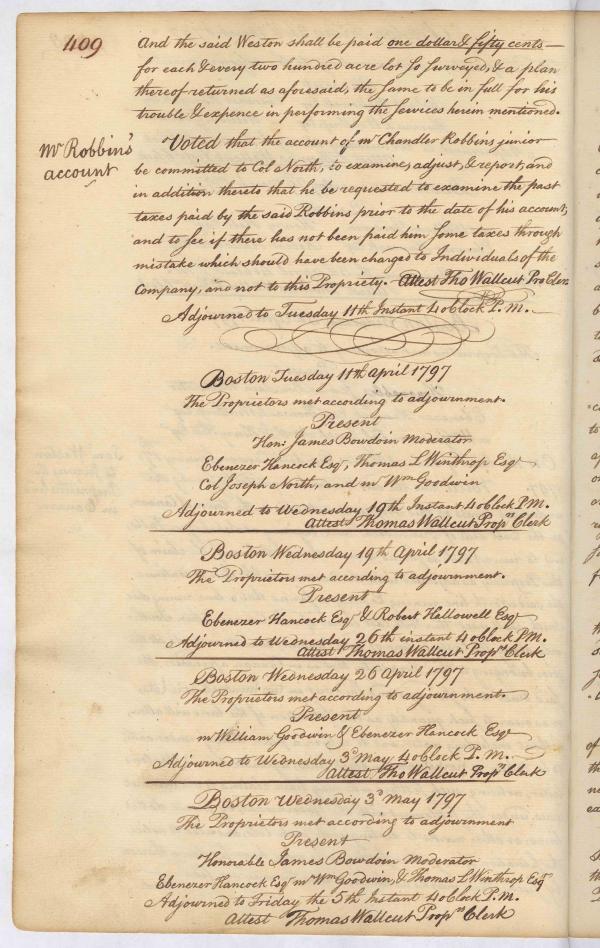 409
And the said Weston shall be paid one dollar & fifty cents—
for each & every two hundred acre lot so surveyed, & a plan
thereof returned as aforesaid, the same to be in full for his
trouble & expence in performing the services herein mentioned.
Mr Robbins's
account
Voted that the account of mr Chandler Robbins junior
be committed to Col North, to examine, adjust, & report, and
in addition thereto that he be requested to examine the past
taxes paid by the said Robbins prior to the date of his account,
and to see if there has not been paid him some taxes through
mistake which should have been charged to Individuals of the
Company, and not to this Propriety. Attest Tho Wallcut Pro Cler.
Adjourned to Tuesday 11th Instant 4 oClock P.M.
Boston Tuesday 11th April 1797
The Proprietors met according to adjournment.
Present
Hon: James Bowdoin Moderator
Ebenezer Hancock Esqr, Thomas L Winthrop Esqr
Col Joseph North, and mr Wm Goodwin
Adjourned to Wednesday 19th Instant 4 oClock P.M.
Attest Thomas Wallcut Proprs Clerk
Boston Wednesday 19th April 1797
The Proprietors met according to adjournment.
Present
Ebenezer Hancock Esqr & Robert Hallowell Esqr
Adjourned to Wednesday 26th instant 4 oClock P.M.
Attest Thomas Wallcut Proprs Clerk
Boston Wednesday 26 April 1797
The Proprietors met according to adjournment.
Present
mr William Goodwin & Ebenezer Hancock Esqr
Adjourned to Wednesday 3d May 4 oClock P.M.
Attest Tho Wallcut Proprs Clerk
Boston Wednesday 3d May 1797
The Proprietors met according to adjournment
Present
Honorable James Bowdoin Moderator
Ebenezer Hancock Esqr mr Wm Goodwin, & Thomas L Winthrop Esqr
Adjourned to Friday the 5th Instant 4 oClock P.M.
Attest Thomas Wallcut Proprs Clerk